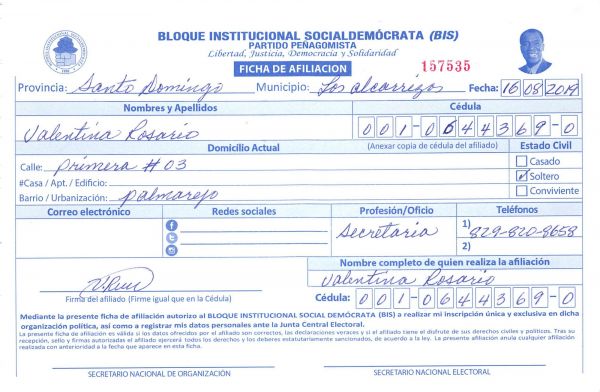 BLOQUE INSTITUCIONAL SOCIALDEMÓCRATA (BIS)
PARTIDO PEÑAGOMISTA
Libertad, Justicia, Democracia y Solidaridad
FICHA DE AFILIACION
157535
Provincia: Santo Domingo Municipio: Los alcarrizos Fecha: 16 08 2019
Nombres y Apellidos Cédula
Valentina Rosario 001-0644369-0
Domicilio Actual (Anexar copia de cédula del afiliado) Estado Civil
Calle: primera # 03 Casado
#Casa / Apt. / Edificio: Soltero
Barrio / Urbanización: palmarejo Conviviente
Correo electrónico Redes sociales Profesión/Oficio Teléfonos
Secretaria 1) 829-820-8658
2)
Nombre completo de quien realiza la afiliación
Valentina Rosario
Firma del afiliado (Firme igual que en la Cédula) Cédula: 001-0644369-0
Mediante la presente ficha de afiliación autorizo al BLOQUE INSTITUCIONAL SOCIAL DEMÓCRATA (BIS) a realizar mi inscripción única y exclusiva en dicha
organización política, así como a registrar mis datos personales ante la Junta Central Electoral.
La presente ficha de afiliación es válida si los datos ofrecidos por el afiliado son correctos, las declaraciones veraces y si el afiliado tiene el disfrute de sus derechos civiles y políticos. Tras su
recepción, sello y firmas autorizadas el afiliado ejercerá todos los derechos y los deberes estatutariamente sancionados, de acuerdo a la ley. La presente afiliación anula cualquier afiliación
realizada con anterioridad a la fecha que aparece en esta ficha.
SECRETARIO NACIONAL DE ORGANIZACIÓN SECRETARIO NACIONAL ELECTORAL